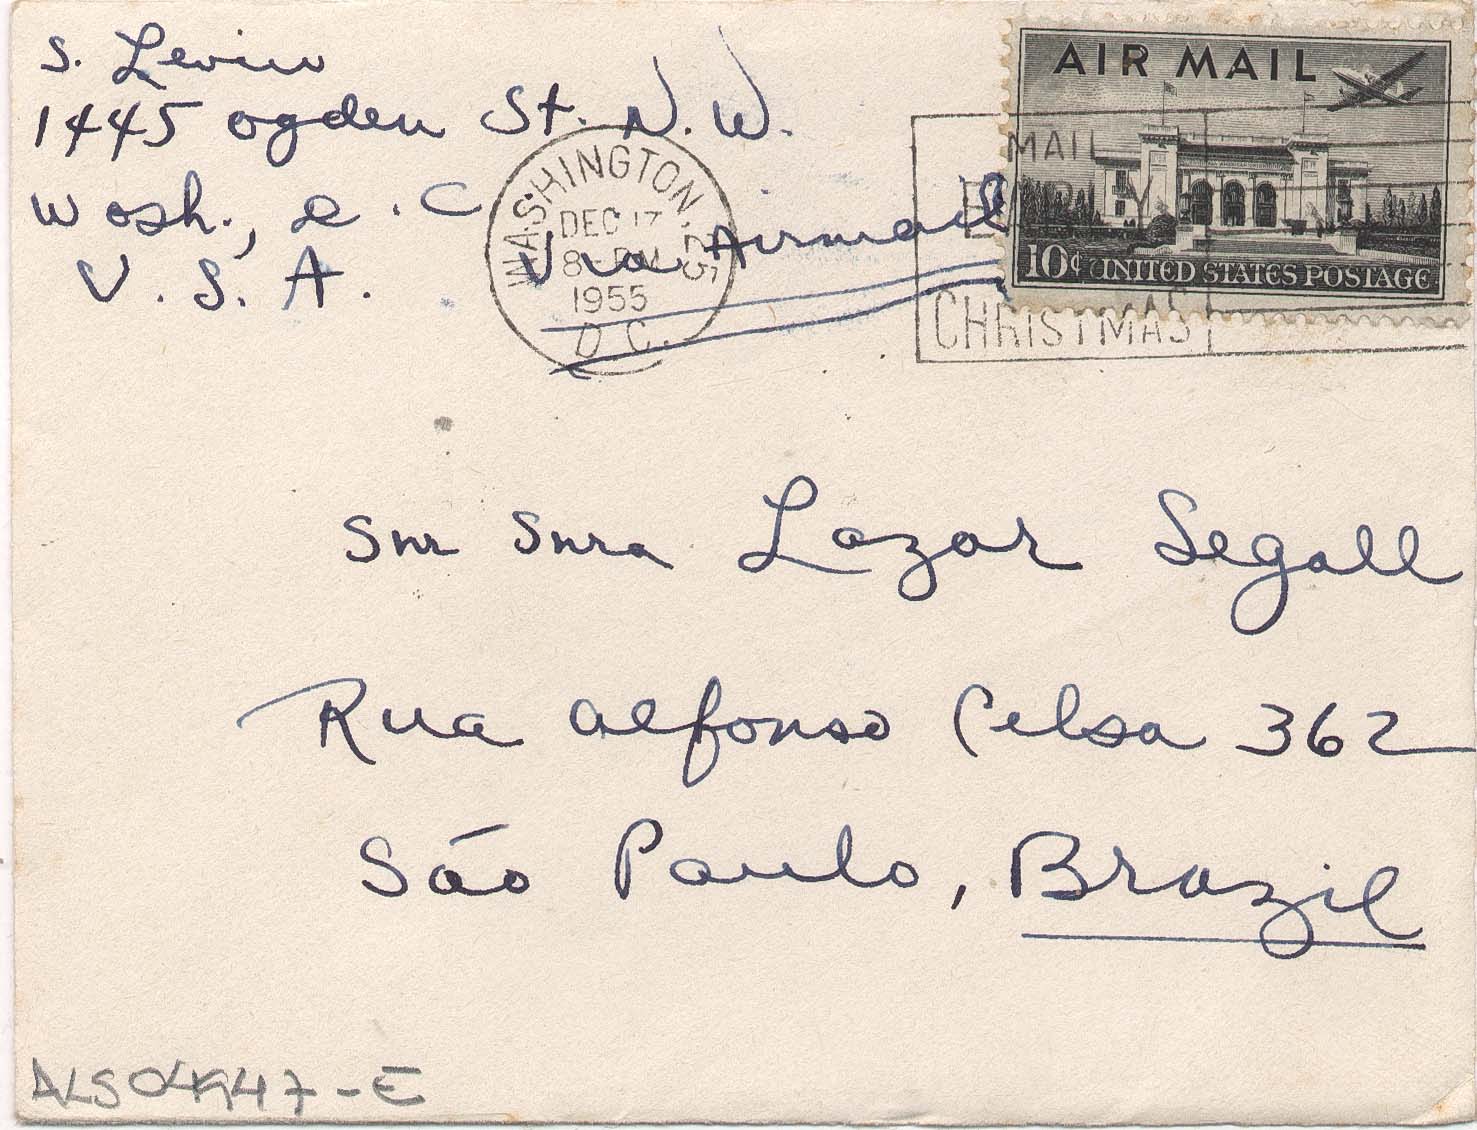 S. Levin
1445 Ogden St. N.W.
Wash., D.C.
U.S.A.
Via Airmail
WASHINGTON, 
DEC 17
8-PM
1955
D.C.
MAIL
EARLY
CHRISTMAS
AIR MAIL
10¢ UNITED STATES POSTAGE
Snr Snra Lazar Segall
Rua Alfonso Celsa 362
São Paulo, Brazil
ALS04947-E